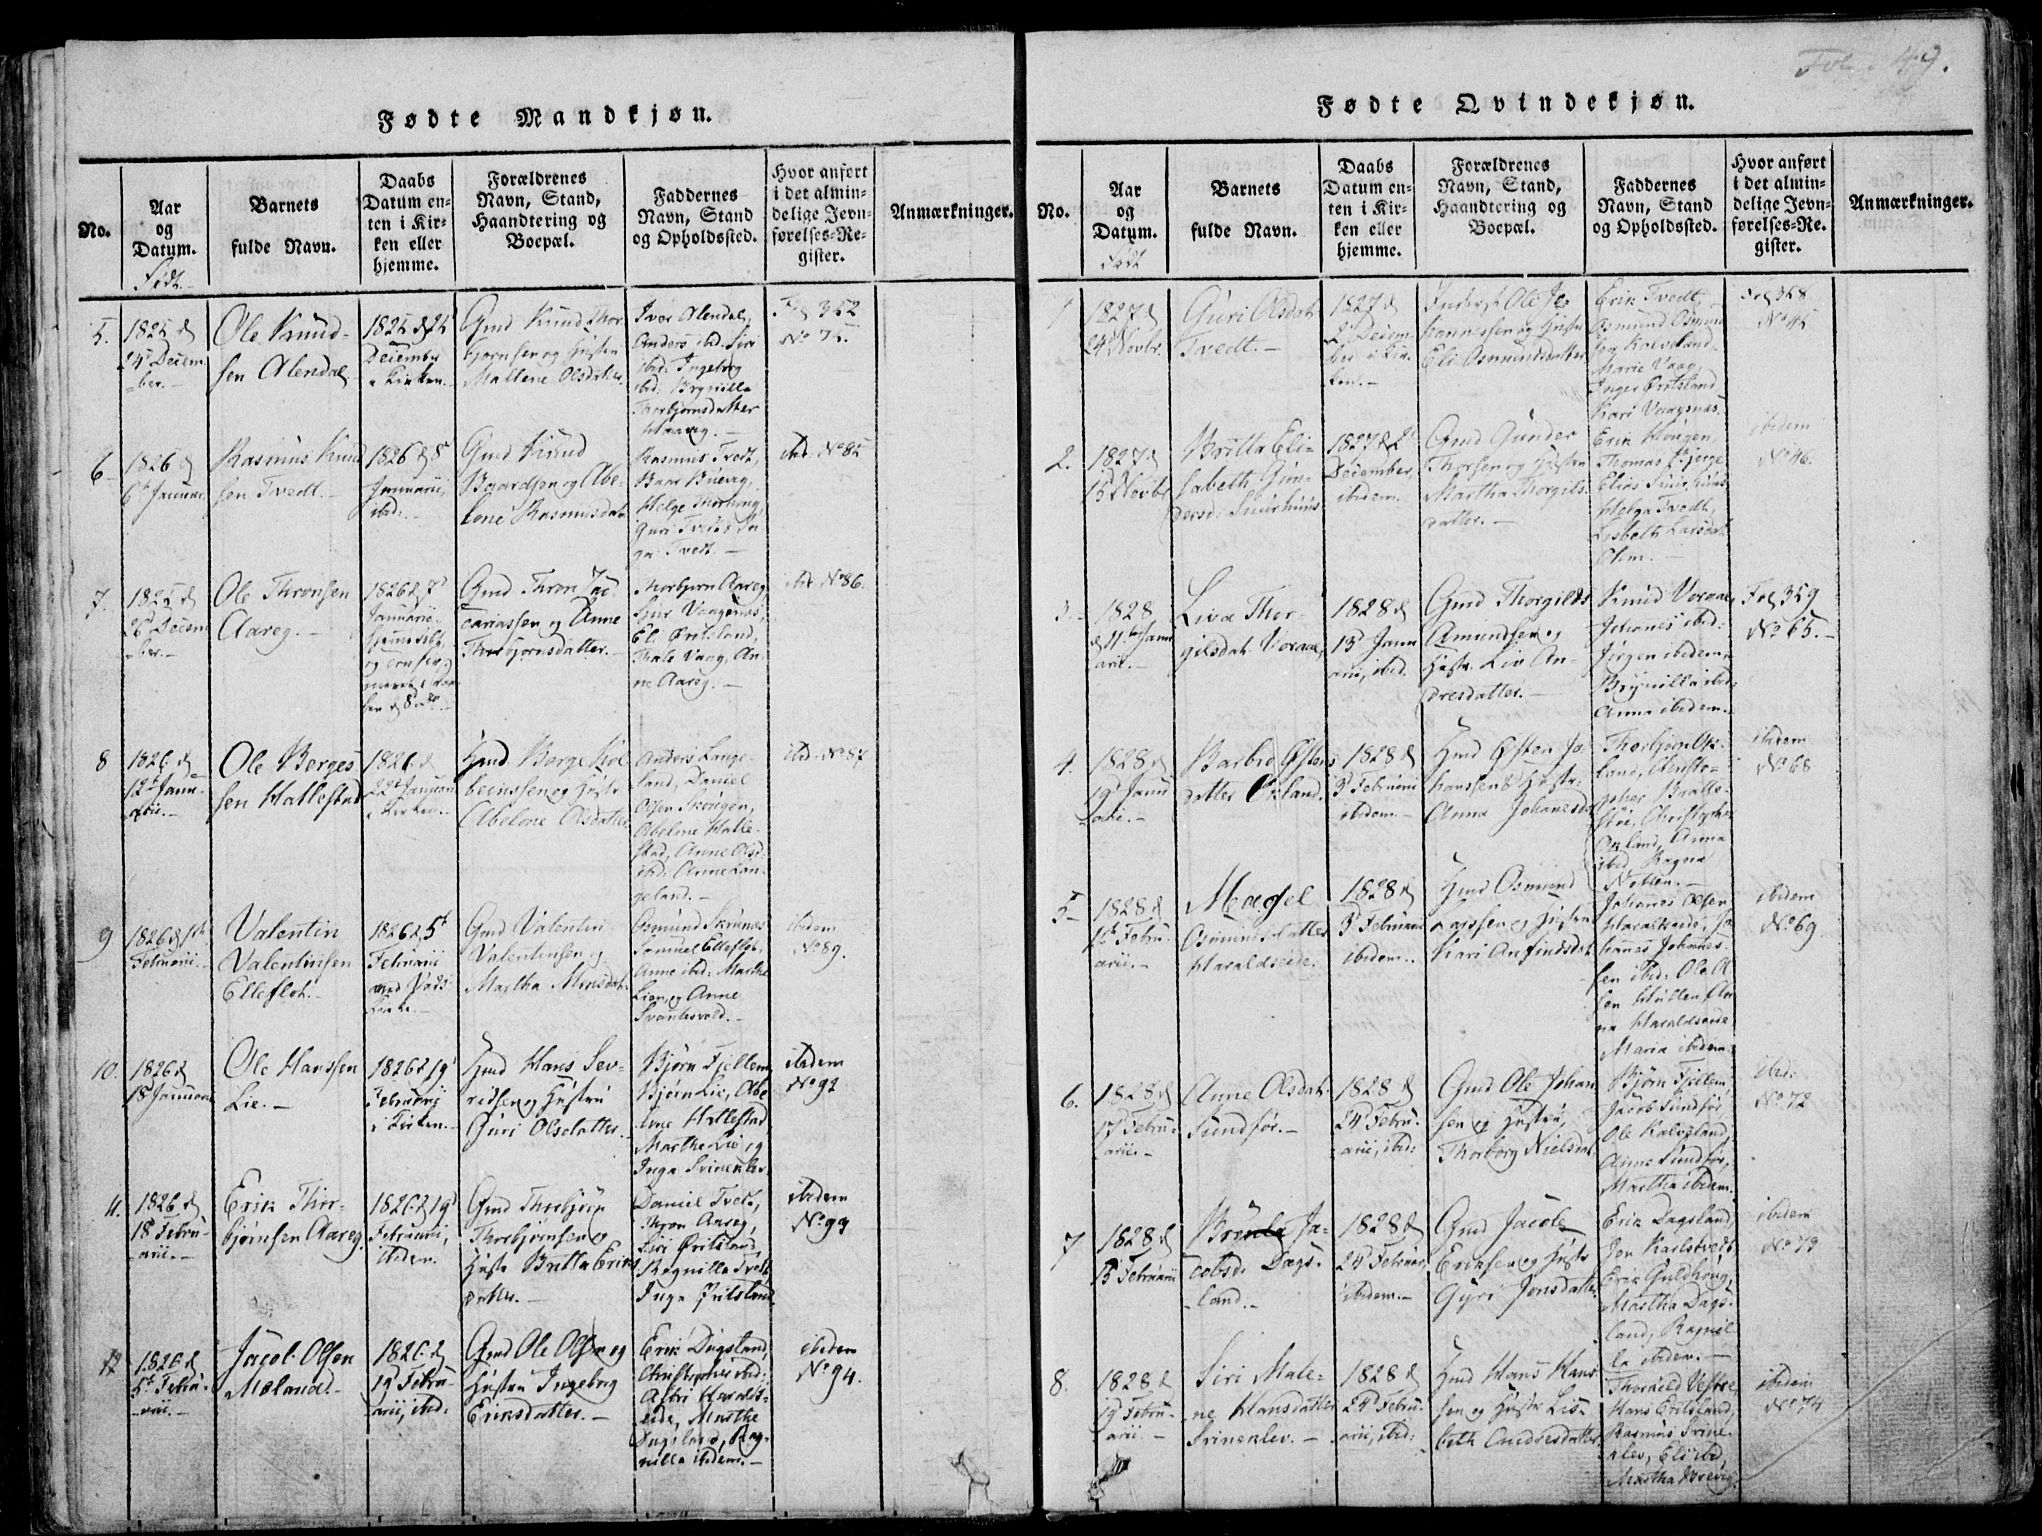 Fol. 49.
Fødte Mandkjøn.
No.
Aar
og
Datum.
Født.
Barnets
fulde Navn.
Daabs
Datum en-
ten i Kir-
ken eller
hjemme.
Forældrenes
Navn, Stand,
Haandtering og
Boepæl.
Faddernes
Navn, Stand
og Opholdssted.
Hvor anført
i det almin-
delige Jevn-
førelses-Re-
gister.
Anmærkninger.
5.
1825 d
24 Decem
ber.
Ole Knud-
sen Alendal
Decembr
i Kirken.
Gmd Knud Thor
bjørnsen og Hustru
Mallene Olsdatter
Iver Alendal,
Anders ibd. Siri
ibd. Ingeborg
ibd. Bognilla
Thorbjørnsdatter
Fol 352
No 75.
6
1826 d
6te Januar
Rasmus Knud
sen Tvedt.
1826 d 8
Januarii,
ibid.
Gmd Knud
Baardsen og Abe-
lone Rasmusdatr
Rasmus Tvedt,
Guri Tvedt, In
ga Tvedt.
ibd. No 85
7.
1825 d
26 Decem
ber.
Ole Thronsen
Aareg.
1826 d 7
Januarii
Gmd Thron Zac
cariassen og Anne
Thorbjørnsdatter.
Thorbjørn Aareg
Eli Øritsland,
Thale Vaag, An-
ne Aareg.
ibd No 86.
8
1826 d
12te Janu-
arii.
Ole Børges
sen Hallestad
1826. d
22d Januarii
i Kirken.
Gmd Børge Kol
beinssen og Hustr
Abelone Olsdatter
Anders Lange
land, Daniel
Olsen Skougen,
Abelone Halle-
stad, Anne Olsd.
ibd: Anne Lan-
geland.
ibd. No 87
9
1826 d 1ste
Februarii.
Valentin
Valentinsen
Elleflot.
1826 d 5t
Februarii
Kirke.
Gmd Valentin
Valentinsen og
Martha Monsdatr
Samuel Elleflot,
Anne ibid: Marthe
Lien, og Anne
Svantesvold.
ibidem
No. 89.
10.
1826 d
18 Januarii
Ole Hanssen
Lie.
1826 d 19
Februarij
i Kirken.
Gmd Hans Sev-
ridsen og Hustru
Guri Olsdatter.
Bjørn Fjellem
Bjørn Lie, Abe
lone Hallestad
Marthe Lie, og
Inga Svinenlev
ibidem
No 92
11.
1826 d
18 Febru-
arii.
Erik Thor-
bjørnsen Aareg.
1826 d 19
Februarii,
ibidem.
Gmd Thorbjørn
Thorbjørnsen og
Hustr Britta Eriks
datter.
Daniel Tvedt,
Thron Aareg,
Siri Øritsland,
Bognilla Tvedt
Inga Øritsland
ibidem
No. 93
12
1826 d
5te Febru-
arii.
Jacob Olsen
Mæland.
1826. d
19 Febru-
arii, ibid:
Gmd Ole Olsen og
Hustru Ingeborg
Eriksdatter.
Erik Dagsland,
Christopher ibid:
Astri Haralds-
eide, Marthe
Dagsland, Rag-
nilla ibidem.
ibidem
No. 94.
Fødte Qvindekjøn.
No.
Aar
og
Datum.
Født
Barnets
fulde Navn.
Daabs
Datum en-
ten i Kir-
ken eller
hjemme.
Forældrenes
Navn, Stand,
Haandtering og
Boepæl.
Faddernes
Navn, Stand
og Opholdssted.
Hvor anført
i det almin-
delige Jevn-
førelses-Re-
gister.
Anmærkninger.
1
1827 d
24 Novbr.
Guri Olsdatr
Tvedt.
1827 d
2 Decem-
ber i Kir-
ken.
Inderst Ole Jo
hannessen og Hustru
Eli Osmundsdatter
Erik Tvedt,
Osmund Osmund
sen Kalveland
Marie Vaag,
Inger Øritsland
Kari Vaagsnæs.
Fol 358
No 45
2.
1827 d
15 Novbr
Britta Eli-
sabeth Gun-
dersd. Snurhuus
1827 d 2
December,
ibidem.
Gmd Gunder
Thorsen og Hustru
Martha Thorgils-
datter.
Erik Hougen,
Thomas Bjerge
Elias Snurhuus
Helga Tvedt,
Lisbeth Larsdatr
ibidem
No 46.
3.
1828
d 11te Janu
arii.
Liva Thor-
gilsdatr Voraae,
1828 d
13 Janu
arii, ibid.
Gmd Thorgils
Amundsen og
Hustr. Liv An-
dresdatter.
Knud Voraae,
Johanes ibid:
Jørgen ibidem
Brynilla ibid:
Anna ibidem.
Fol 359
No 65.
4.
1828 d
19 Janu
arii.
Barbro Østens
datter Øxland.
1828 d
3 Februarii
ibidem.
Gmd Østen Jo
hanssen & Hustr:
Anna Johanesdr
Thorbjørn Øx-
land, Christo-
pher Bratte-
ibid. Ragna
ibidem
No 68
5
1828 d
1ste Febru-
arii.
Magel
Osmundsdatter
Haraldseide.
1828 d
3 Februarii
ibidem.
Gmd Osmund
Larssen og Hustru
Kari Anfindsdatr
Johanes Olsen
Haraldseide, Jo
hannes Johannes-
sen ibid. Ole Ol
sen Hutten An
na Haraldseide
Maria ibidem.
ibidem
No. 69
6.
1828 d
17 Febru-
arii.
Anne Olsdatr
Sundfør.
1828 d
24 Febru-
arii, ibid:
Gmd Ole Johan
sen og Hustru,
Thorborg Nielsdatr
Bjørn Fjellem,
Jacob Sundfør,
Ole Kalvsland,
Anne Sundfør,
Martha ibidem.
ibid.
No. 72
7
1828 d
15 Februarii
Brønla Ja-
cobsd. Dags-
land.
1828 d
24 Februar,
ibidem.
Gmd Jacob
Eriksen og Hustr
Gyri Jonsdatter
Erik Dagsland,
Jon Karlstvedt,
Erik Guldhoug,
Martha Dags-
land, Ragnil-
la ibidem.
ibidem
No. 73
8.
1828 d
19 Febru-
arii.
Siri Male-
ne Hansdatter
Svinenlev.
1828 d
24 Febru-
arii, ibid:
Gmd Hans Hans
sen og Hustr Lis-
beth Andresdatter.
Thorkild Vestre,
Hans Øritsland,
Rasmus Svine-
nlev, Eli ibid,
ibidem
No. 74